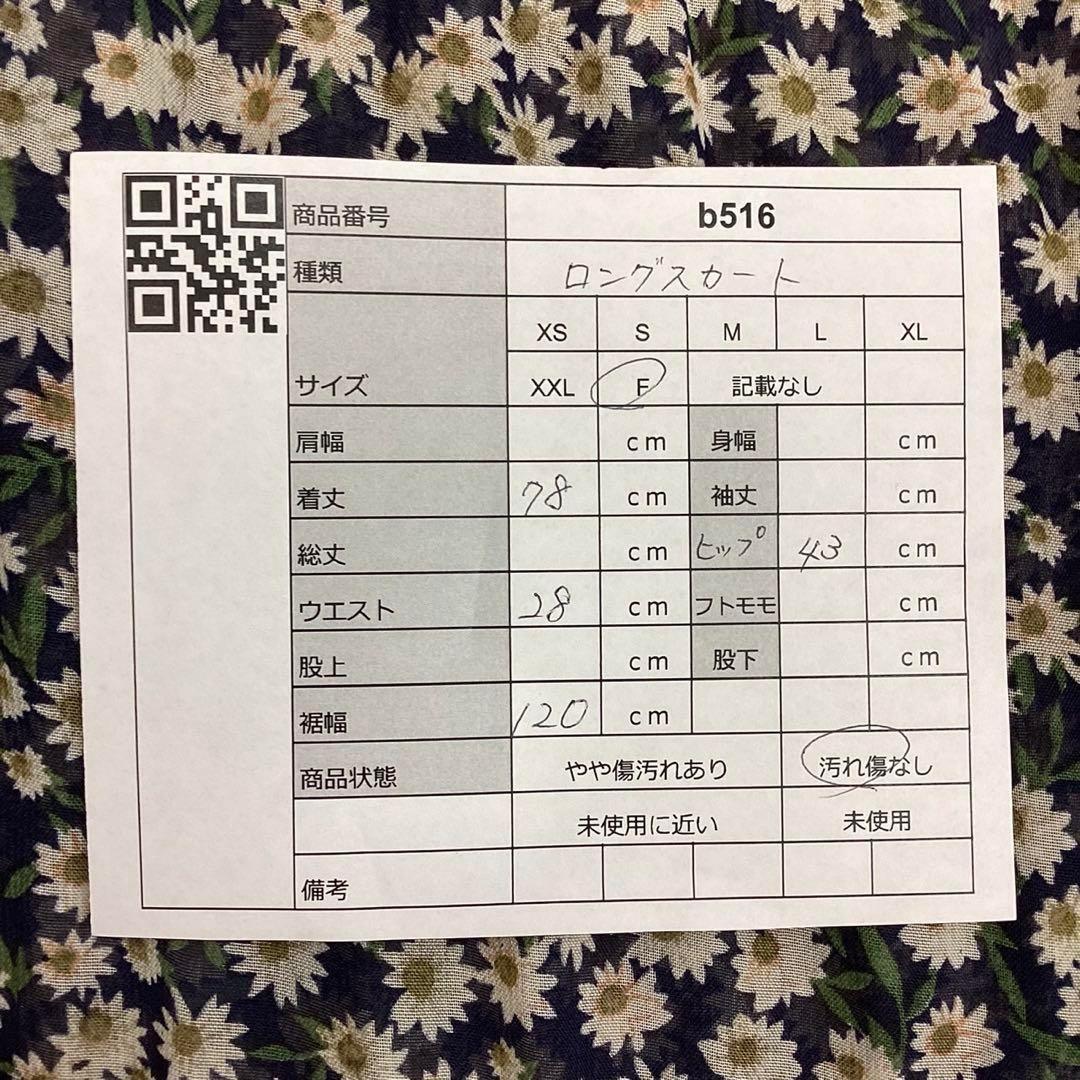 商品番号 b516
種類 ロングスカート
XS S M L XL
サイズ XXL F 記載なし
肩幅 cm 身幅 cm
着丈 78 cm 袖丈 cm
総丈 cm ヒップ 43 cm
ウエスト 28 cm フトモモ cm
股上 cm 股下 cm
裾幅 120 cm
商品状態 やや傷汚れあり 汚れ傷なし
未使用に近い 未使用
備考